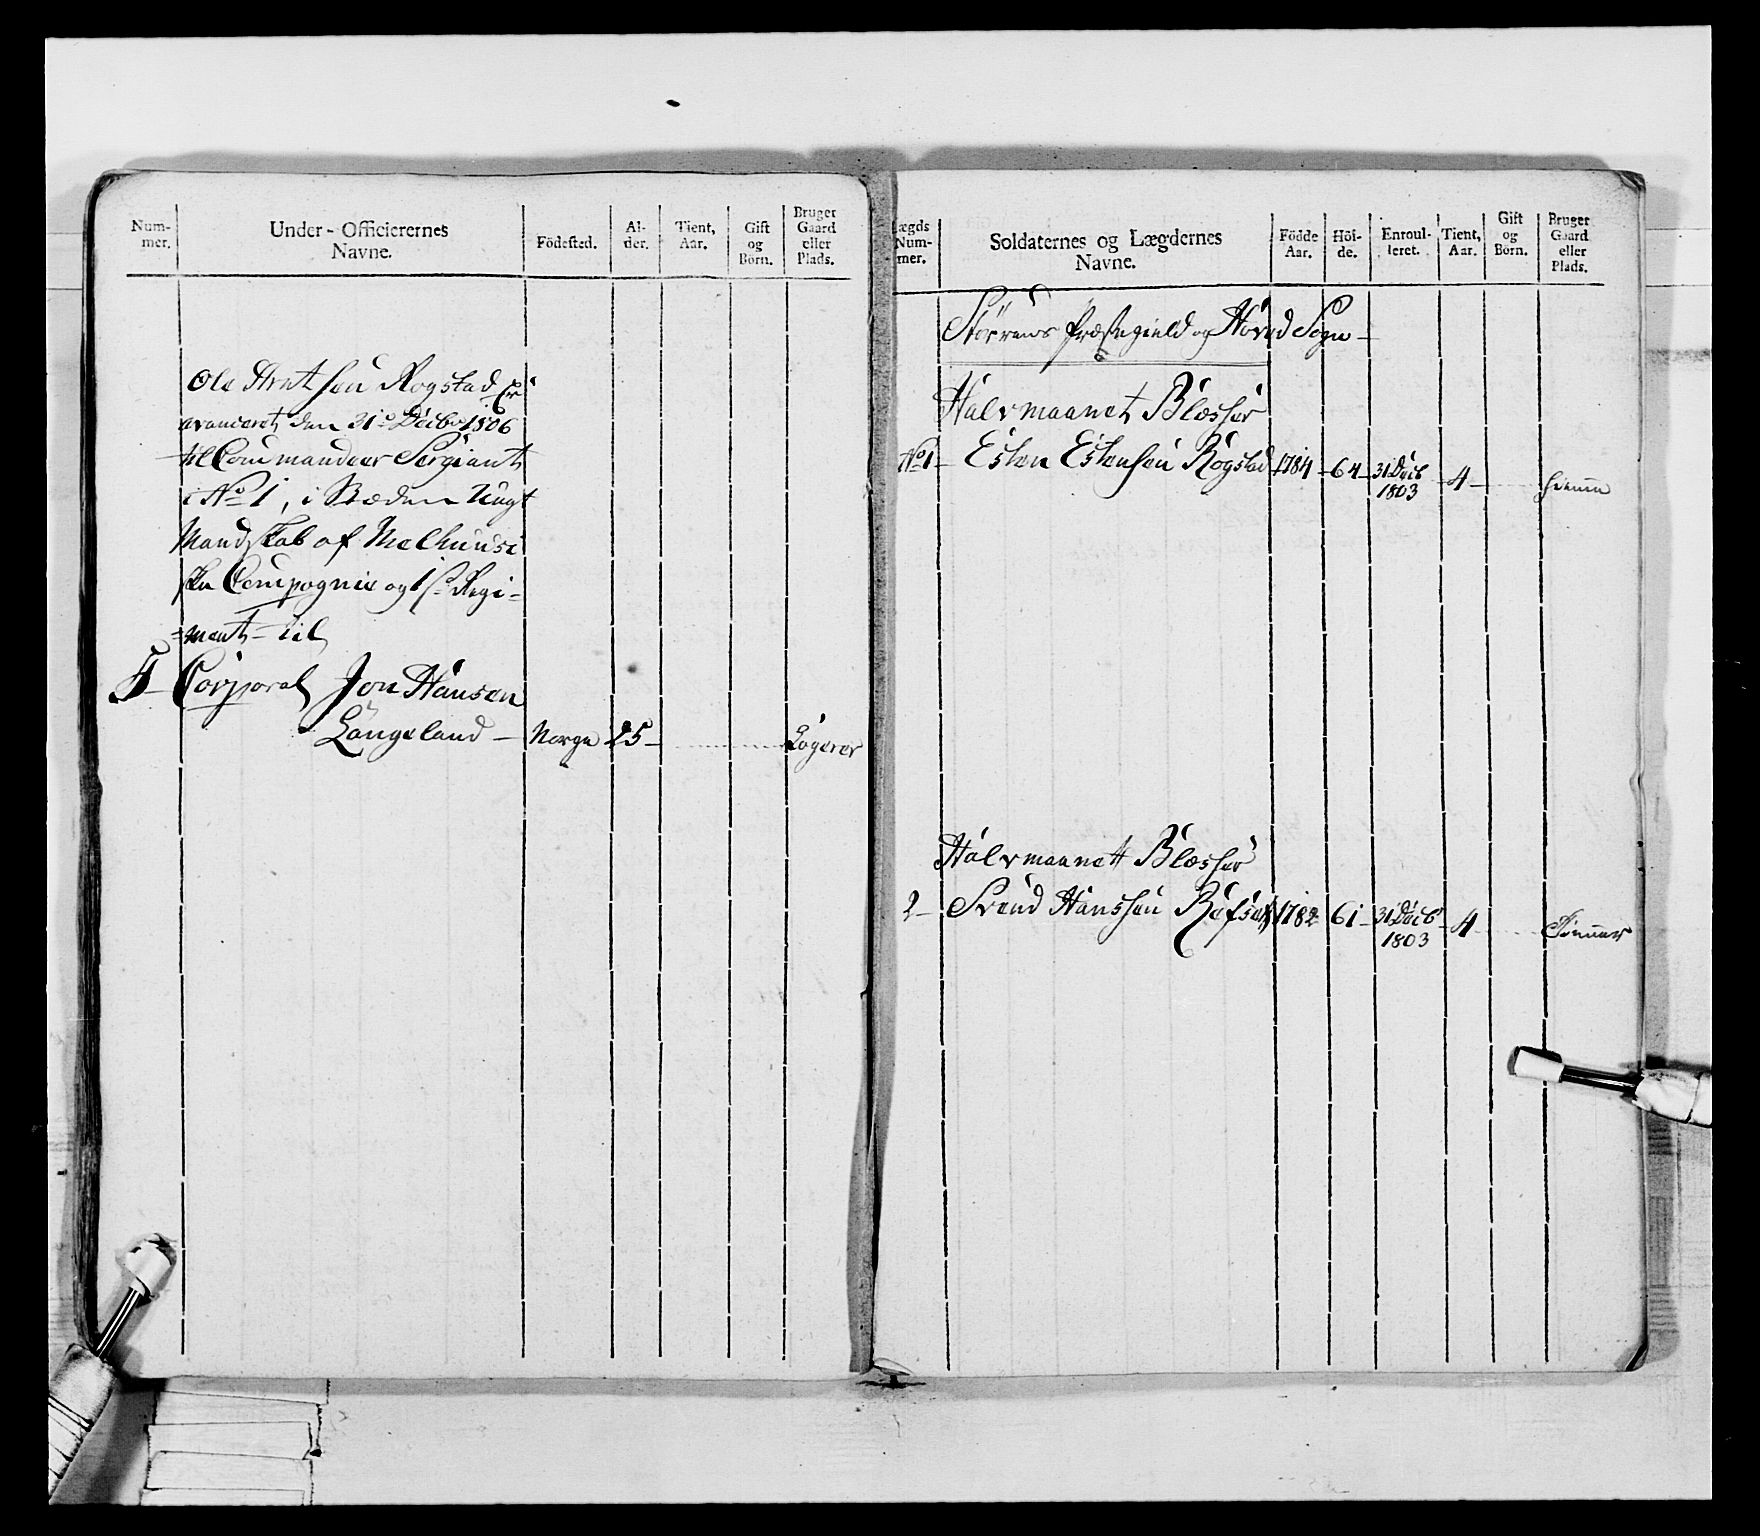 Num-
mer.
Under-Officierernes
Navne.
Födested.
Al-
der.
Tient,
Aar.
Gift
og
Börn.
Bruger
Gaard
eller
Plads.
Ole Arntsen Rogstad Er
avanceret den 31te Decbr 1806
til Commandeer Sergiant
i No 1, i Stæden Ungt
Mandskab af Melhuusi
ske Compagnie og 1ste Regi-
=ment til
4 Corporal Jon Hansen
Langeland - Norge 25 - Logerer
Lægds
Num-
mer.
Soldaternes og Lægdernes
Navne.
Födde
Aar.
Höi-
de.
Enroul-
leret.
Tient,
Aar.
Gift
og
Börn.
Bruger
Gaard
eller
Plads.
Störrens Præstegield og Hoved Sogn -
Halvmaanet Blæsser
No 1 - Esten Estensen Rogstad 1784 - 64 - 31 Decb 1803 - 4 - hiemme
Halvmaanet Blæsser
2 - Svend Hanssen 1782 61 - 31 Decb 1803 - 4 - Tienner